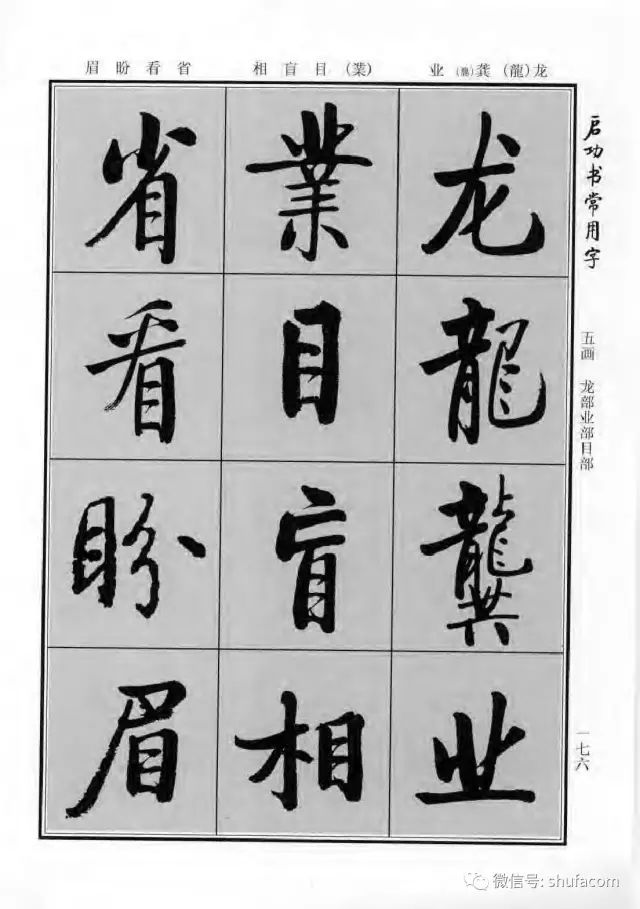 眉盼看省 相盲目(業) 业(龔)龚(龍)龙
启功书常用字
五画 龙部业部目部
龙
龍
龔
业
業
目
盲
相
省
看
盼
眉
一七六
微信号: shufacom